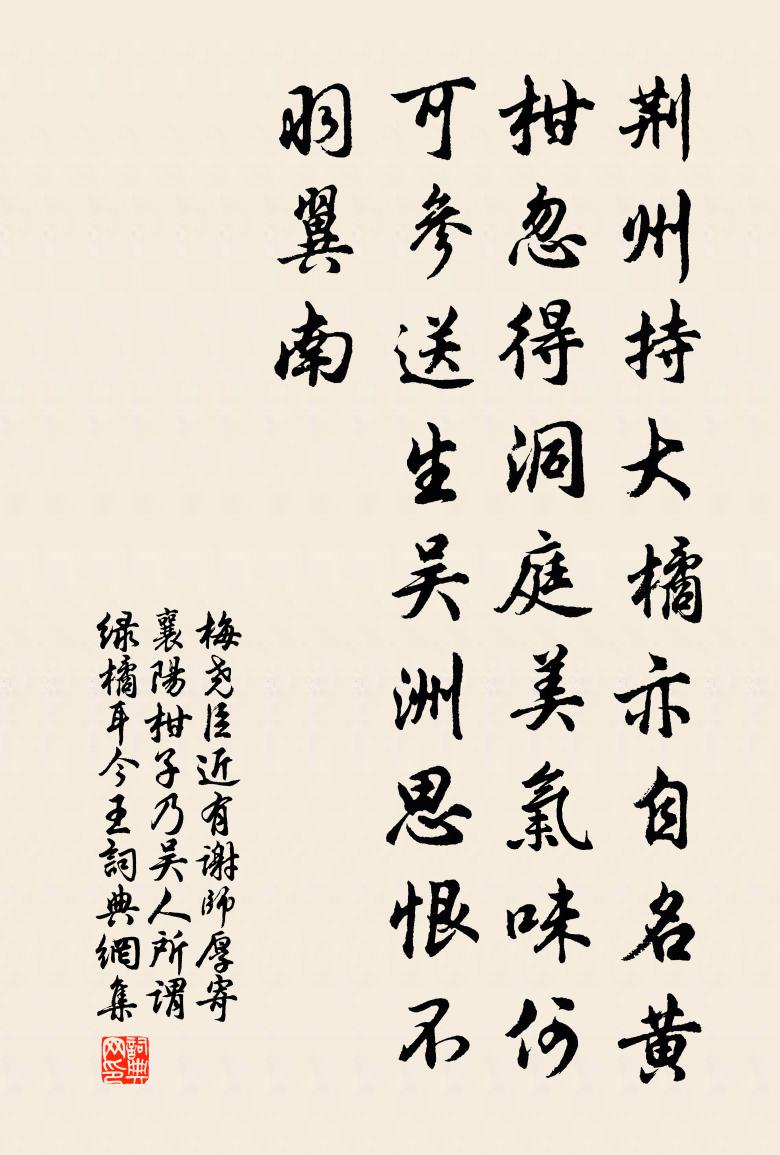 荆州持大橘亦自名黄
柑忽得洞庭美氣味何
可參送生吴洲思恨不
羽翼南
梅尧臣近有谢師厚寄
襄陽柑子乃吴人所谓
绿橘耳今王詞典網集
詞典网印